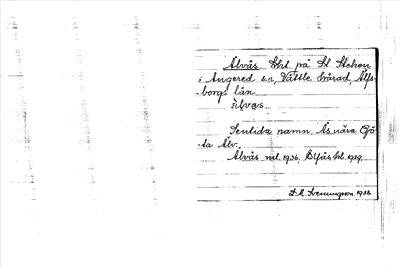 Alvås, bht. på St. Steken
i Angered sn, Vättle härad, Älfs-
borgs län
älvås
Sentida namn. Ås nära Gö-
ta älv.
Alvås mtl. 1936, Elfås hl. 1929.
D. A. Svenungson. 1938